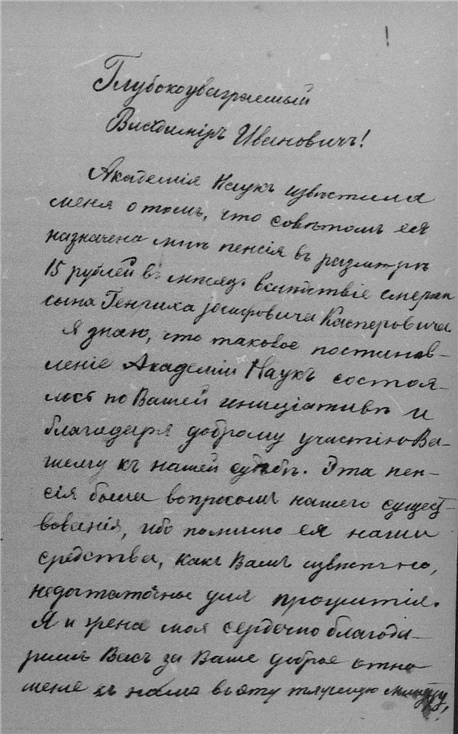 Глубокоуважаемый
Владимiръ Ивановичъ!
Академiя Наукъ извѣстила
меня о томъ, что совѣтомъ ея
назначена мнѣ пенсiя въ размѣрѣ
15 рублей въ мѣсяцъ вслѣдствiе смерти
сына Генриха Iосифовича Касперовича
Я знаю, что таковое постанов-
ленiе Академiи Наукъ состоя-
лось по Вашей инициативѣ и
благодаря доброму участiю Ва-
шему къ нашей судьбѣ. Эта пен-
сiя была вопросомъ нашего сущест-
вованiя, ибо помимо ея наши
средства, какъ Вамъ извѣстно,
недостаточны для прожитiя.
Я и жена моя сердечно благода-
римъ Васъ за Ваше доброе отно
шенiе къ намъ въ эту тяжелую минуту